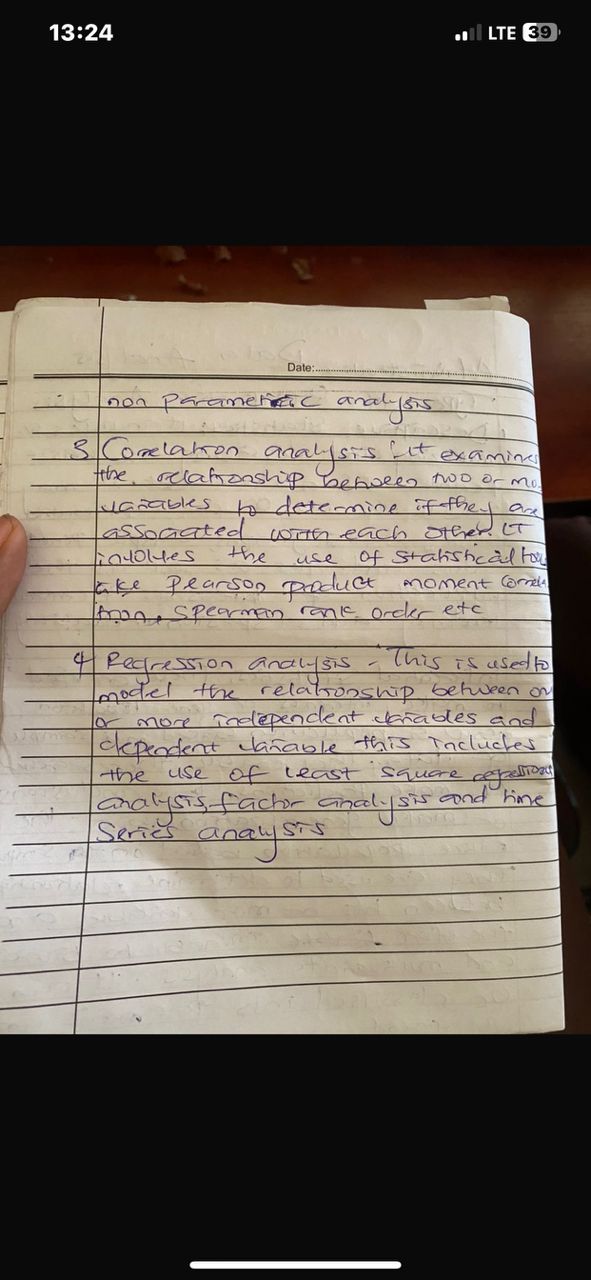 13:24
LTE 39
Date:
non parametric analysis
3 Correlation analysis : It examines
the relationship between two or mo
variables to determine if they are
associated with each other. IT
involves the use of statistical
like Pearson product moment correla
tion, Spearman rank order etc
4 Regression analysis - This is used to
model the relationship between on
or more independent variables and
dependent variable this includes
the use of least square regression
analysis, factor analysis and time
Series analysis